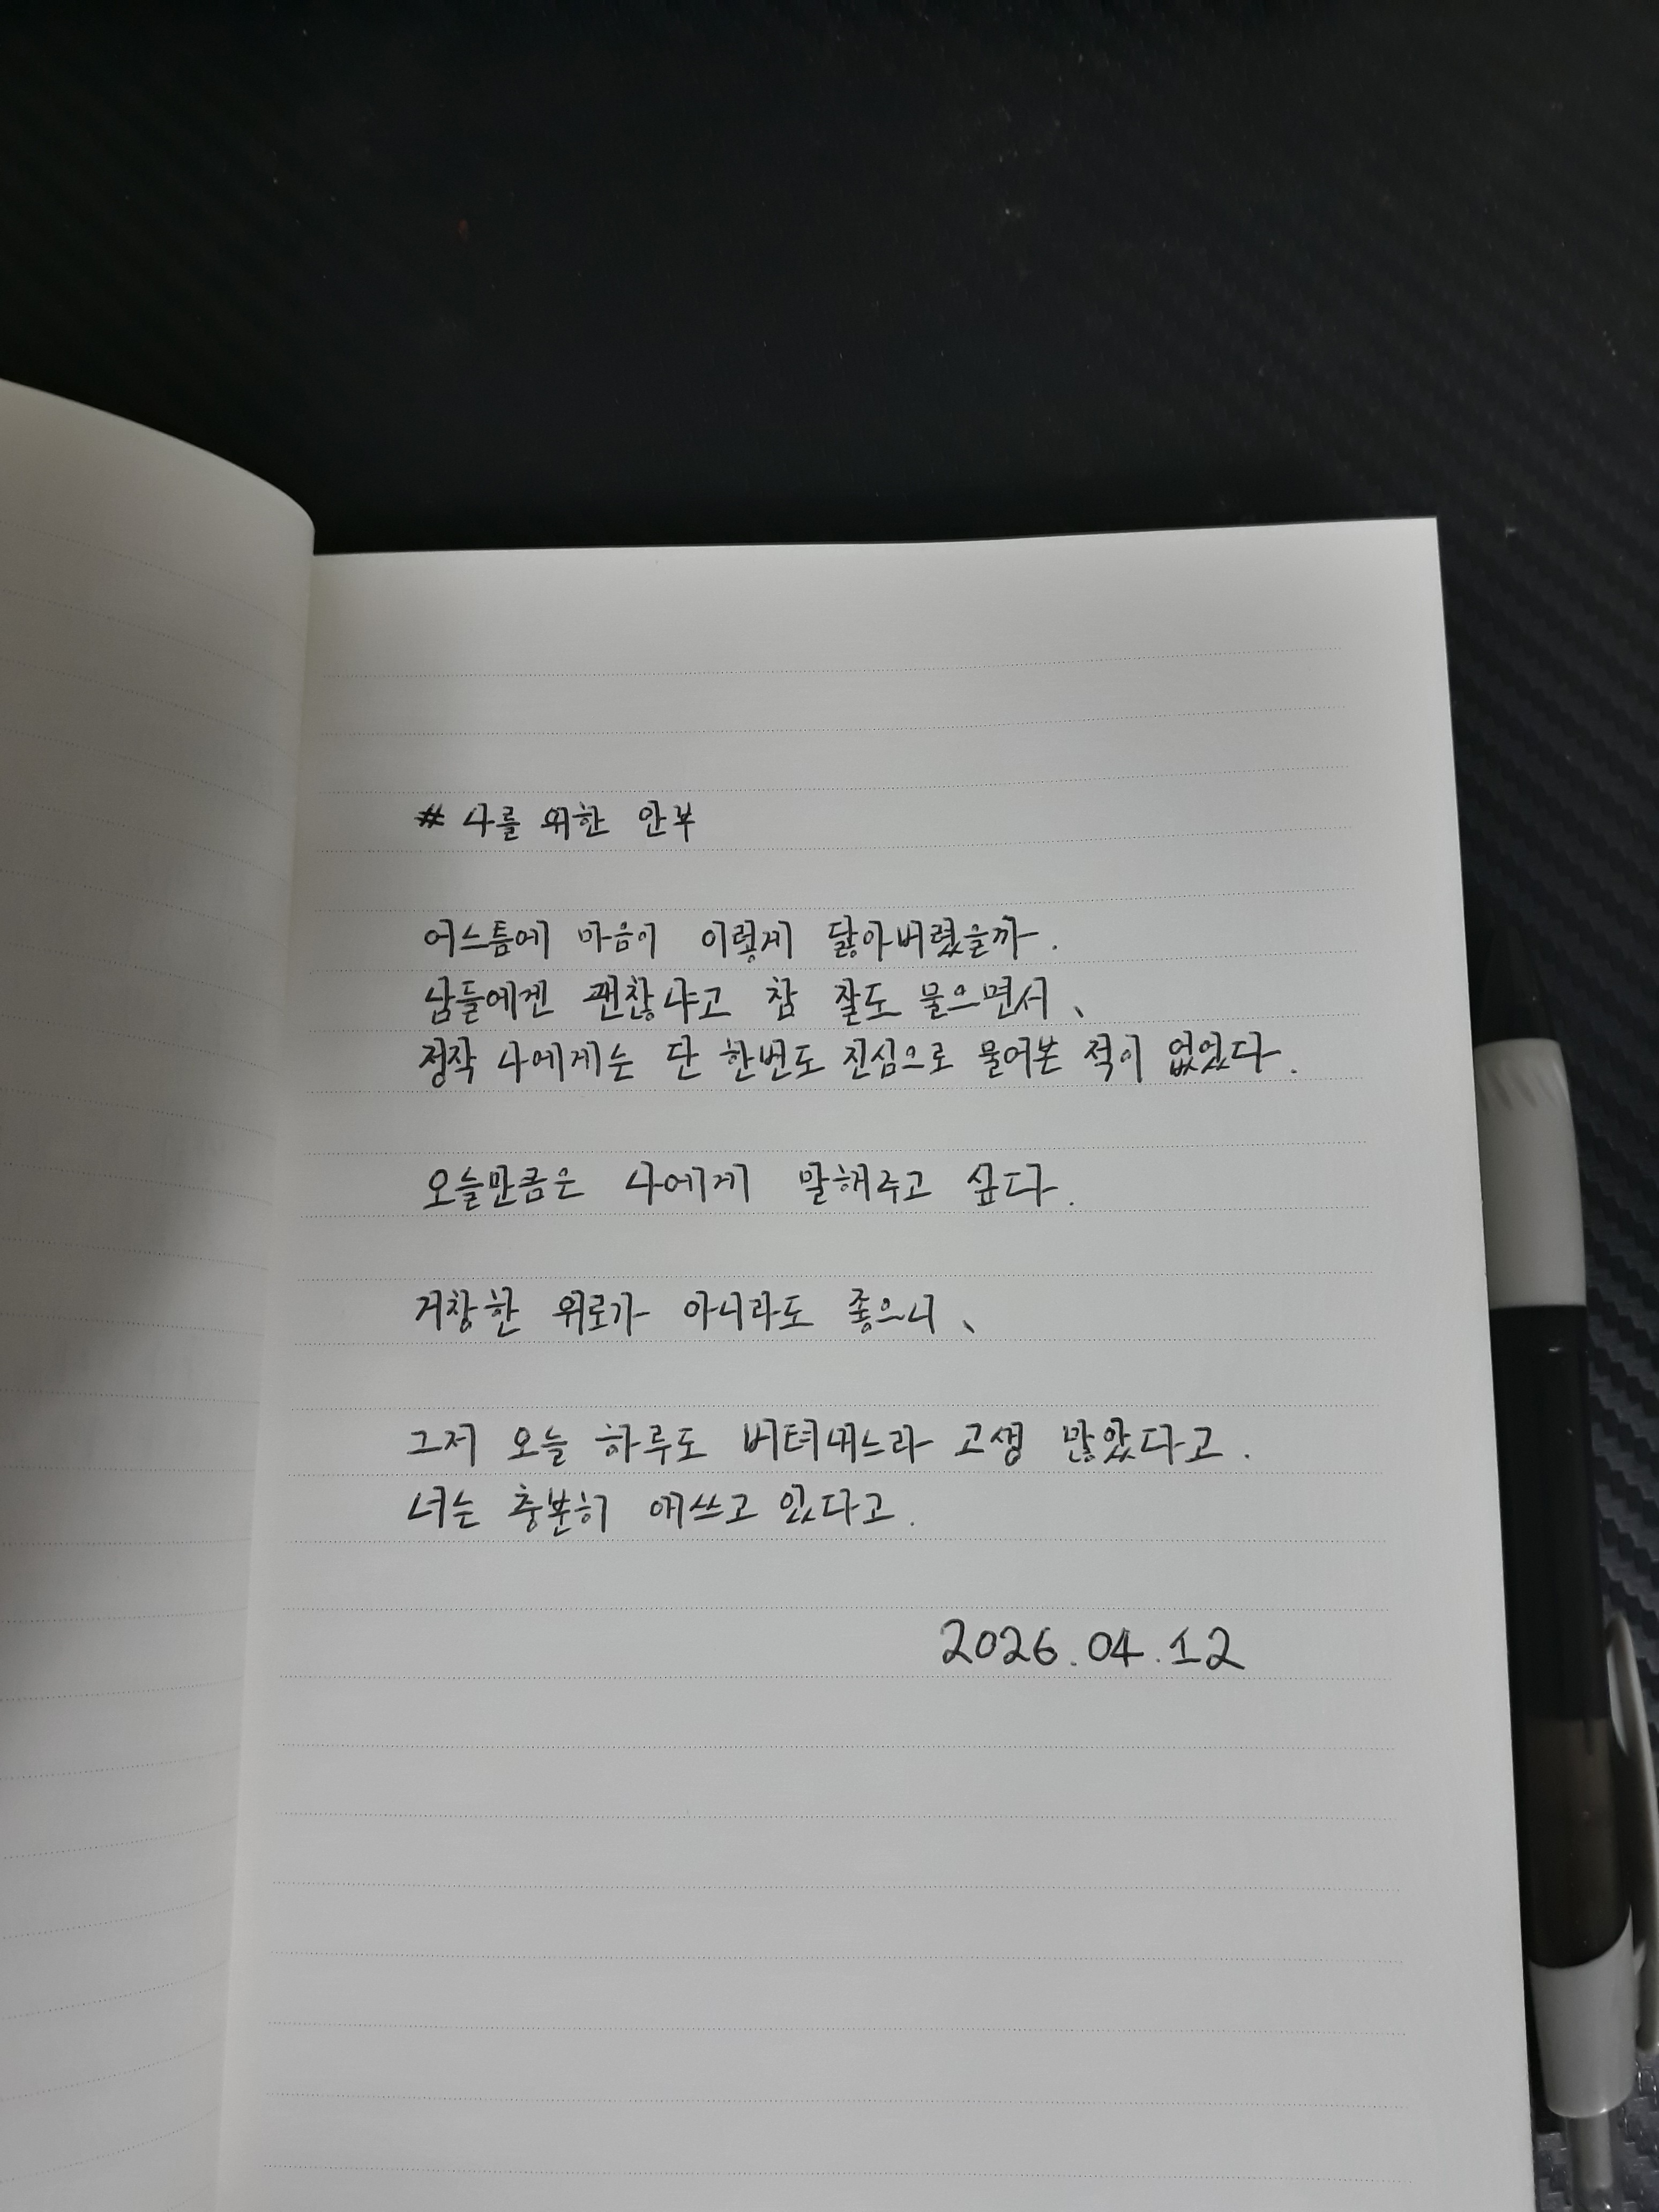 # 나를 위한 안부
어스틈에 마음이 이렇게 닳아버렸을까.
남들에겐 괜찮냐고 참 잘도 물으면서、
정작 나에게는 단 한번도 진심으로 물어본 적이 없었다.
오늘만큼은 나에게 말해주고 싶다.
거창한 위로가 아니라도 좋으니、
그저 오늘 하루도 버텨내느라 고생 많았다고.
너는 충분히 애쓰고 있다고.
2026.04.12